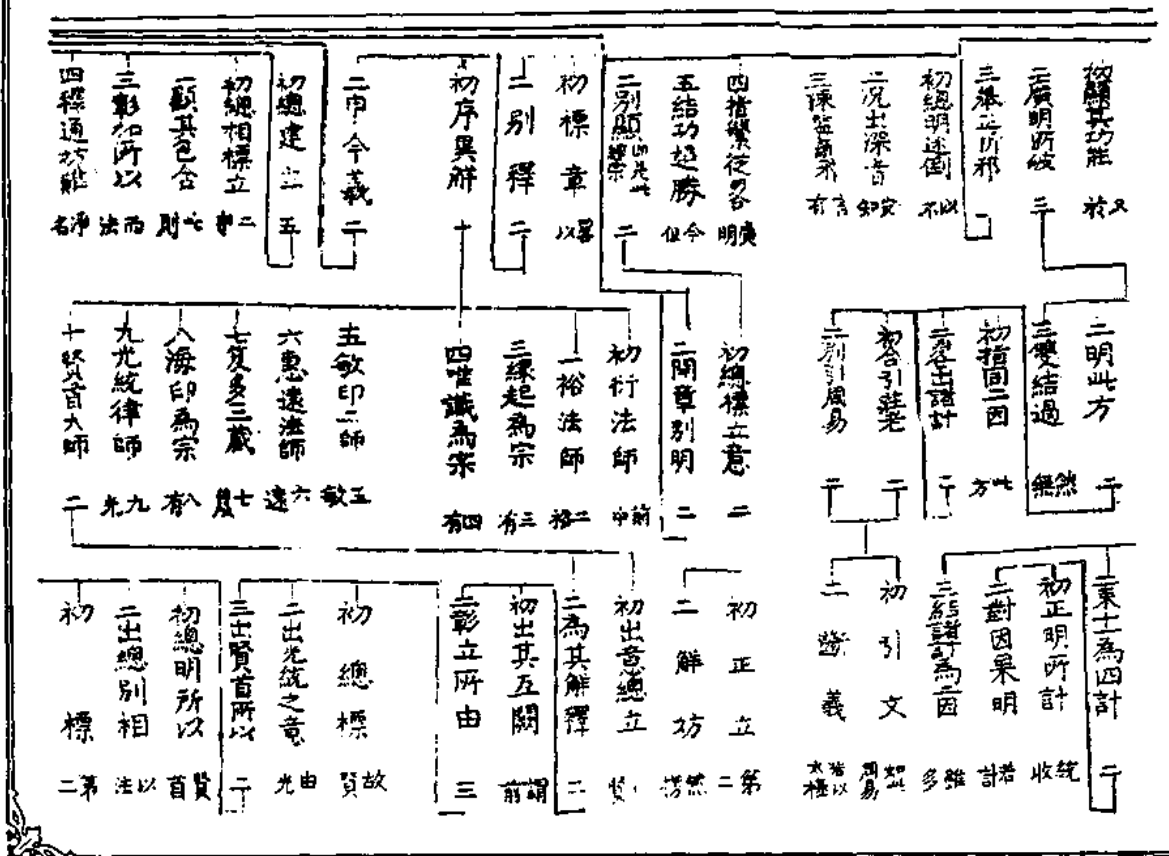 初顯其功能 又於
二廣明所破 三
三舉正折邪 二
初總明迷倒 以不
二況出深旨 安知
三誡 言有
四指繁從略 廣明
五結功超勝 今但
二別顯總宗 二
初標章 畧以
二別釋 二
初序異解 十
二申今義 二
初總建立 五
初總相標立 二
二顯其包含 此則
三彰加所以 而法
四釋通妨難 淨名
二明此方 二
三雙結過 然無
初指同二因 此方
二名出諸計 二
初合引莊老 二
二別引周易 二
初總標立意 二
二開章別明 二
初衍法師 前中
二裕法師 二裕
三緣起為宗 三有
四唯識為宗 四有
五敏印二師 五敏
六惠遠法師 六遠
七笈多三藏 七笈
八海印為宗 八有
九光統律師 九光
十賢首大師 二
二東土為四計 二
初正明所計 統收
二對因果明 若計
三結諸計為二因 雖多
初引文 如此周易
二斷義 若以太極
初正立 第二
二解妨 然
初出意總立
二為其解釋 二
初出其互闕 謂前
二彰立所由 三
初總標 故賢
二出光統之意 由光
三出賢首所以 二
初總明所以 賢首
二出總別相 以法
初標 第二